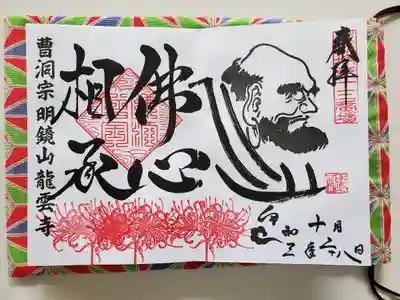 奉拝
佛心
相承
曹洞宗 明鏡山 龍雲寺
令和三年
十月二十八日